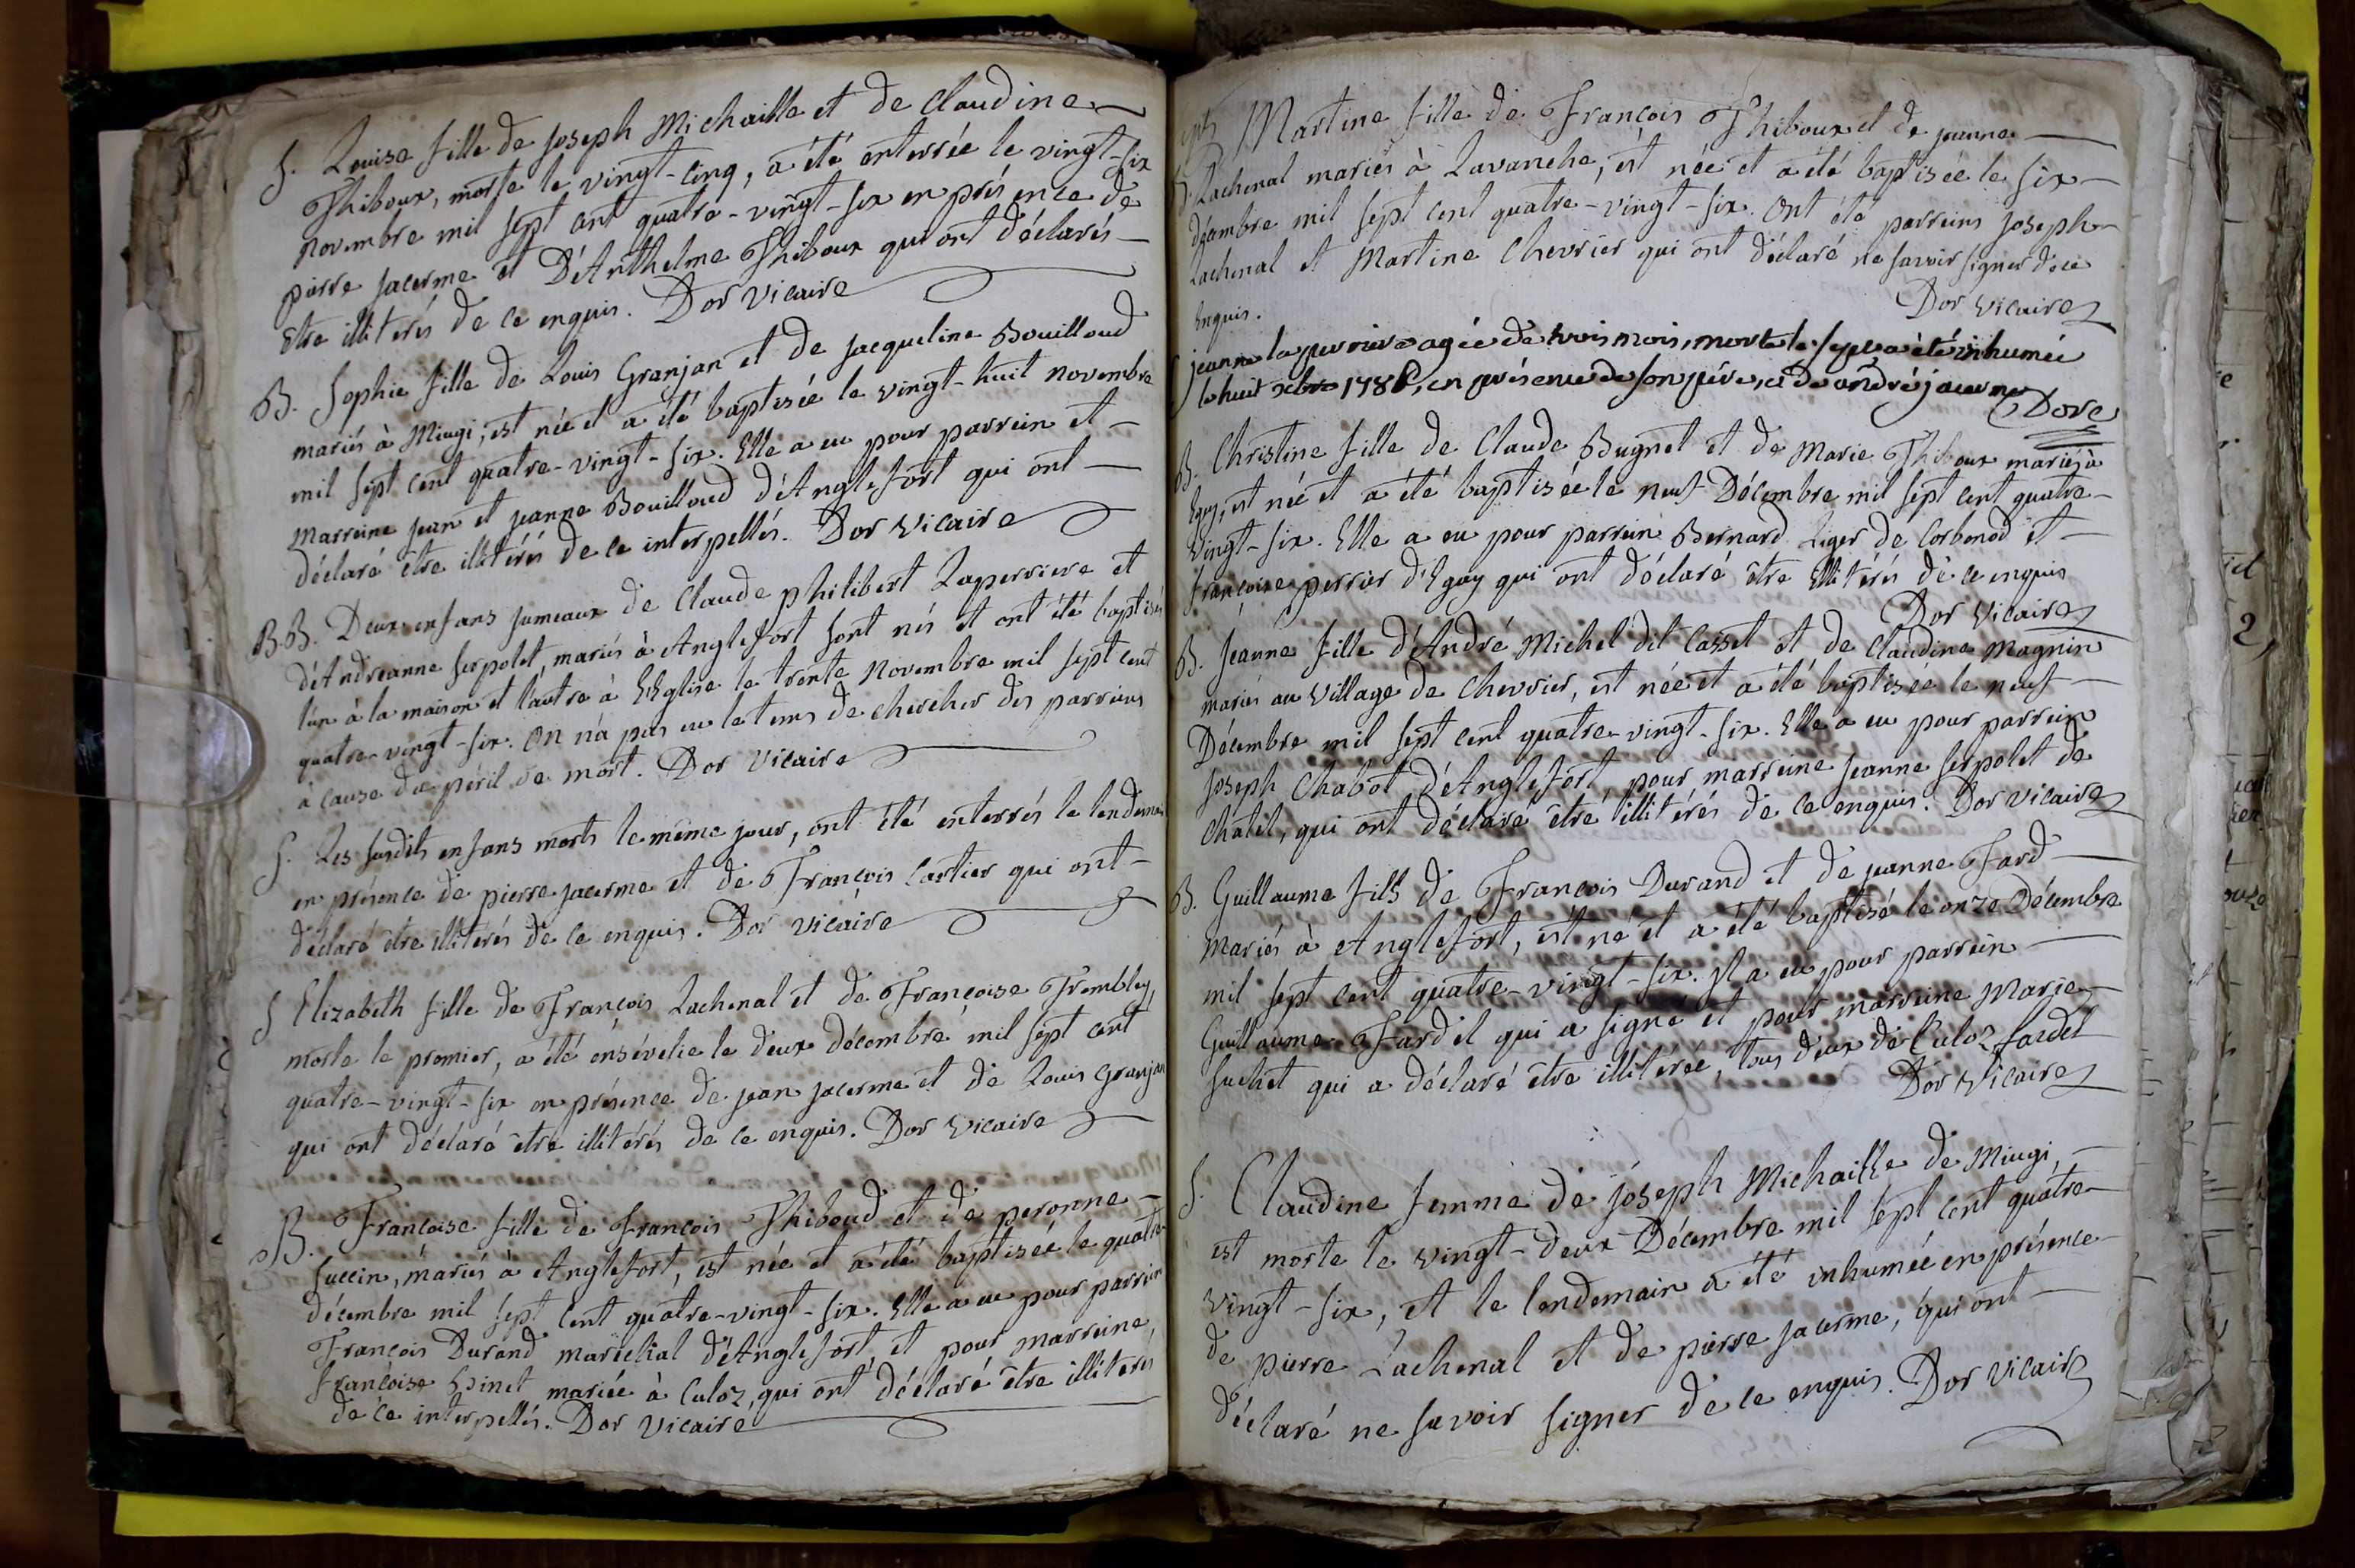 S. Louise fille de Joseph Michaille et de Claudine
Thiboux, morte le vingt-cinq, a été enterrée le vingt-six
novembre mil sept cent quatre-vingt-six en présence de
pierre jacerme et D'Anthelme Thiboux qui ont déclarés
Etre illiterés de ce enquis. Dor Vicaire
B. Sophie fille de Louis Granjan et de jacqueline Bouilloud
mariés à Miugi, est née et a été baptisée le vingt-huit novembre
mil sept cent quatre-vingt-six. Elle a eu pour parrein et
marreine jean et jeanne Bouilloud d'Anglefort qui ont
déclaré être illitérés de ce interpellés. Dor Vicaire
B.B. Deux enfans jumeaux de Claude philibert Laperriere et
d'Andréanne Serpolet, mariés à Anglefort sont nés et ont été baptisés
l'un à la maison et l'autre à l'Eglise le trente Novembre mil sept cent
quatre-vingt-six. On n'a pas eu le tems de chercher des parreins
à cause du péril de mort. Dor Vicaire
S. Les susdits enfans morts le même jour, ont été enterrés le lendemain
en présence de pierre jacerme et de François Cartier qui ont
déclaré être illiterés de ce enquis. Dor Vicaire
S Elizabeth fille de François Lachenal et de Françoise Trembley,
morte le premier, a été ensévelie le deux décembre mil sept cent
quatre-vingt-six en présence de jean jacerme et de Louis Granjan
qui ont déclaré être illitérés de ce enquis. Dor Vicaire
B. Françoise fille de François Thiboud et de peronne
Succin, mariés à Anglefort, est née et a été baptisée le quatre
décembre mil sept cent quatre-vingt-six. Elle a eu pour parrein
François Durand maréchal d'Anglefort, et pour marreine,
françoise Pinet mariée à Culoz, qui ont déclaré être illiterés
de ce interpellés. Dor Vicaire
Martine fille de François Thiboux et de jeanne
Lachenal mariés à Lavanche, est née et a été baptisée le six
décembre mil sept cent quatre-vingt-six. Ont été parreins joseph
Lachenal et Martine Chevrier qui ont déclaré ne savoir signer de ce
Enquis. Dor Vicaire
S jeanne laperriere agée de trois mois, morte le sept a été inhumée
le huit xbre 1786, en présence de son père, et de andré jacerme
Dor c
B. Christine fille de Claude Bugnet et de Marie Thiboux mariés à
Egay, est née et a été baptisée le neuf Décembre mil sept cent quatre
Vingt-six. Elle a eu pour parrein Bernard Liger de Corbonod et
françoise perrier d'Egay qui ont déclaré être Illiterés de ce enquis
Dor Vicaire
B. Jeanne fille d'André Michel dit Casset et de Claudine Magnin
mariés au Village de Chevrier, est née et a été baptisée le neuf
Décembre mil sept cent quatre-vingt-six. Elle a eu pour parrein
Joseph Chabot d'Anglefort, pour marreine Jeanne Serpolet de
Chatel, qui ont déclaré être illitérés de ce enquis. Dor Vicaire
B. Guillaume fils de François Durand et de jeanne Fard
Mariés à Anglefort, est né et a été baptisé le onze Décembre
mil sept cent quatre-vingt-six. Il a eu pour parrein
Guillaume Fardel qui a signé et pour marreine Marie
Suchet qui a déclaré être illitérée, tous deux de Culoz. fardel
Dor Vicaire
S. Claudine femme de joseph Michaille de Miugi,
est morte le vingt-deux Décembre mil sept cent quatre
vingt-six, et le lendemain a été inhumée en présence
de pierre Lachenal et de pierre jacerme, qui ont
déclaré ne savoir signer de ce enquis. Dor Vicaire